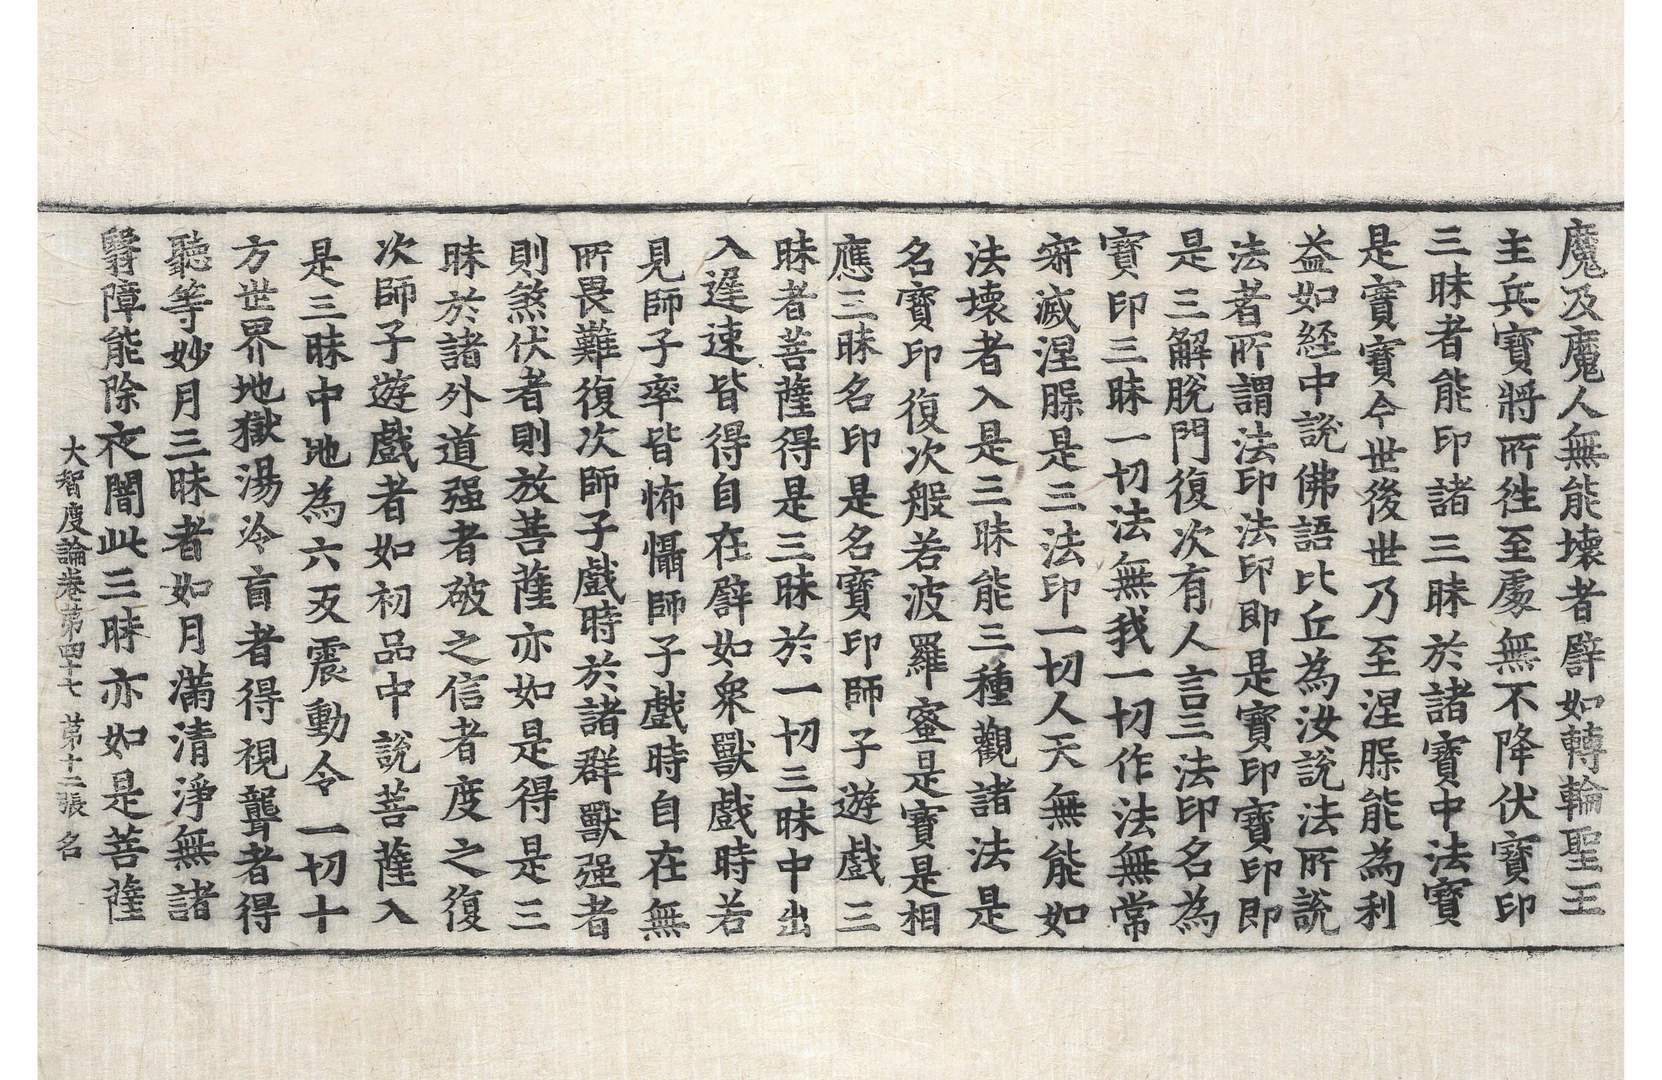 魔及魔人無能壞者譬如轉輪聖王
主兵寶將所往至處無不降伏寶印
三昧者能印諸三昧於諸寶中法寶
是寶寶今世後世乃至涅槃能為利
益如經中說佛語比丘為汝說法所說
法者所謂法印法印即是寶印寶印即
是三解脫門復次有人言三法印名為
寶印三昧一切法無我一切作法無常
寂滅涅槃是三法印一切人天無能如
法壞者入是三昧能三種觀諸法是
名寶印復次般若波羅蜜是寶是相
應三昧名印是名寶印師子遊戲三
昧者菩薩得是三昧於一切三昧中出
入遲速皆得自在譬如衆獸戲時若
見師子率皆怖懾師子戲時自在無
所畏難復次師子戲時於諸群獸强者
則煞伏者則放菩薩亦如是得是三
昧於諸外道强者破之信者度之復
次師子遊戲者如初品中說菩薩入
是三昧中地為六反震動令一切十
方世界地獄湯冷盲者得視聾者得
聽等妙月三昧者如月滿清淨無諸
翳障能除夜闇此三昧亦如是菩薩
大智度論卷第四十七 第十二張 名